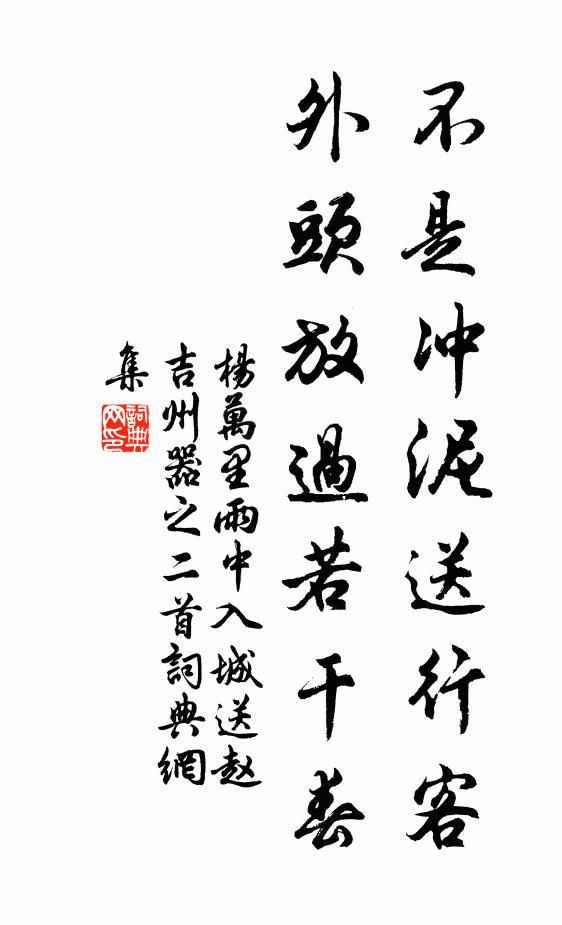 不是冲泥送行客
外頭放過若干春
楊萬里雨中入城送赵
吉州器之二首詞典網
集
詞典
网印